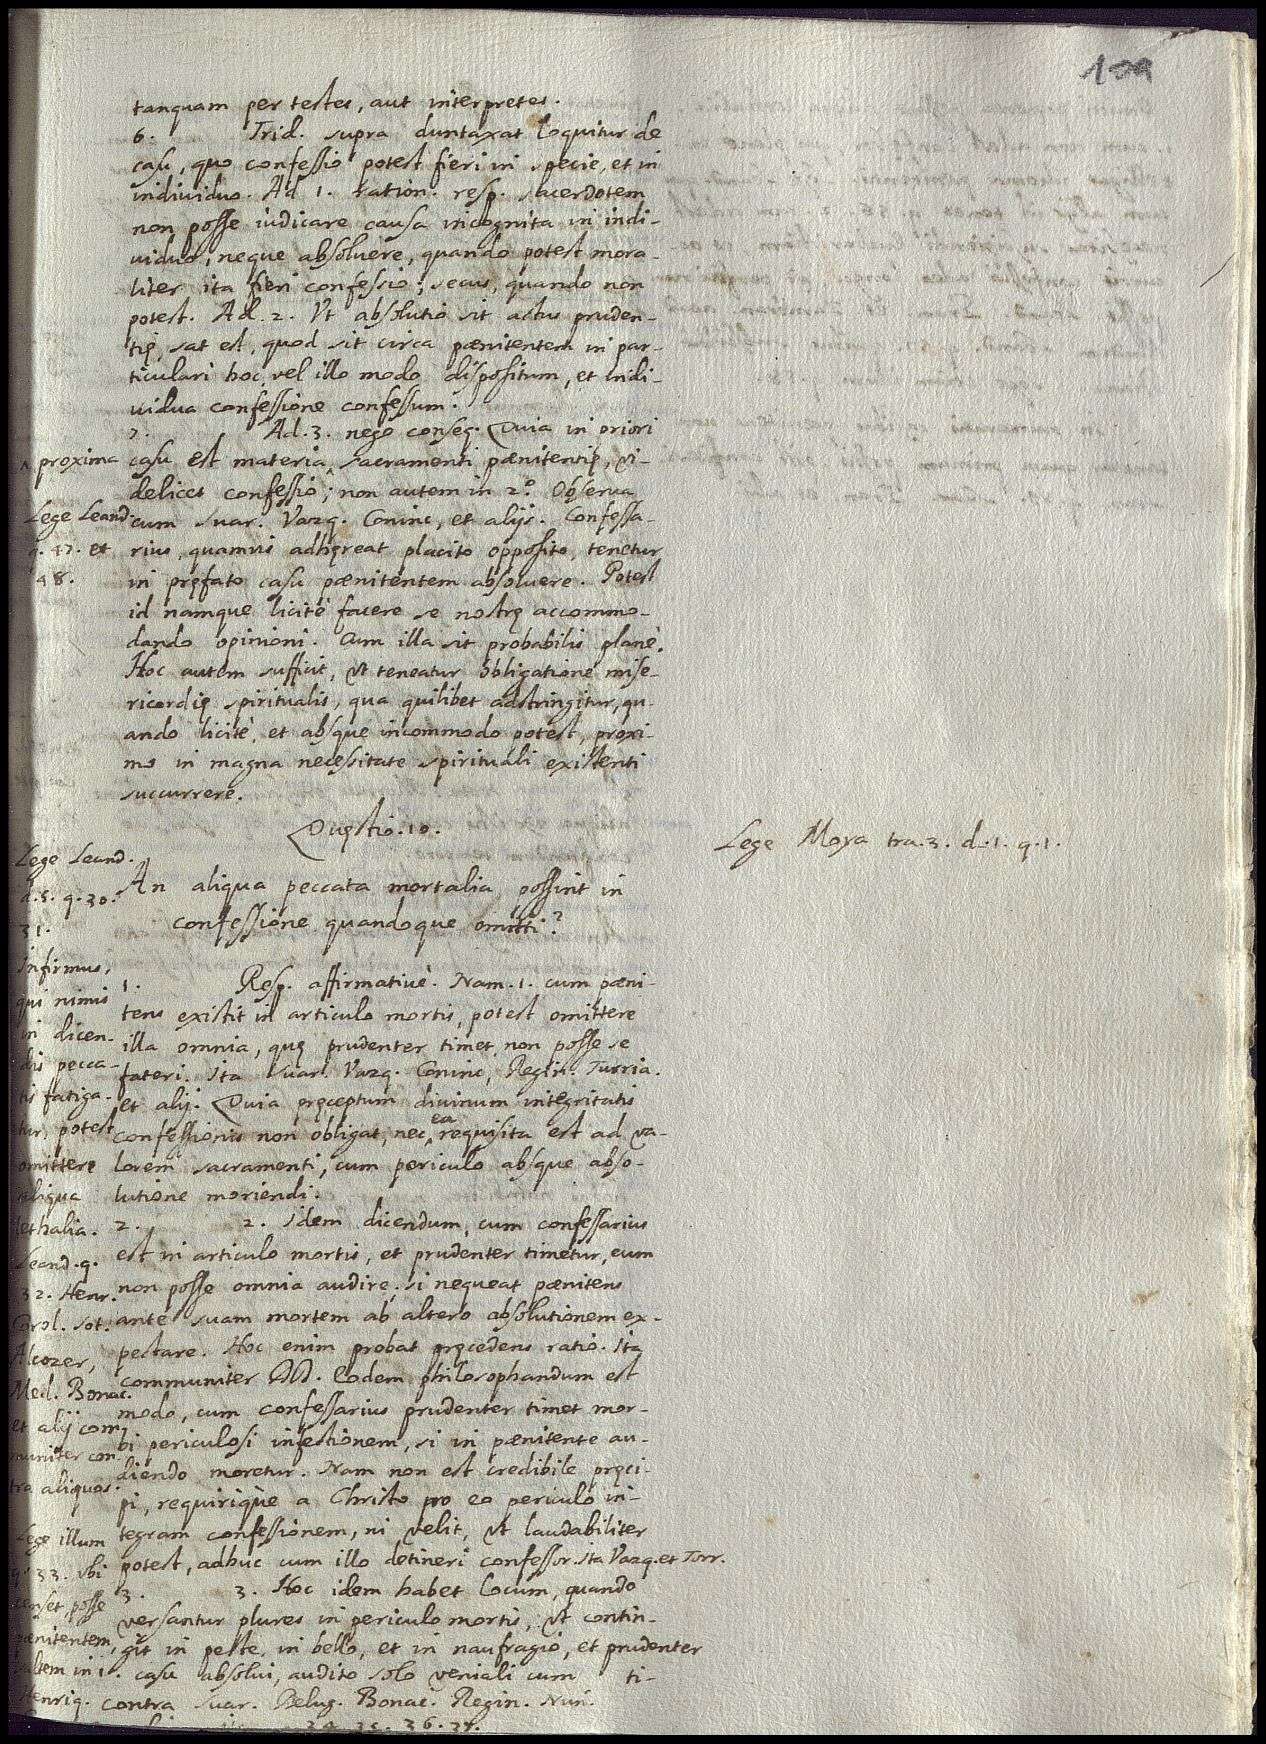 tanquam per testes, aut interpretes.
6. Trid. supra duntaxat loquitur de
casu, quo confessio potest fieri in specie, et in
individuo. Ad 1. ration. resp. sacerdotem
non posse iudicare causa incognita in indi-
uiduo, neque absoluere, quando potest mora-
liter ita fieri confessio; secus, quando non
potest. Ad. 2. Vt absolutio sit actus pruden-
tię, sat est, quod sit circa pænitentem in par-
ticulari hoc, vel illo modo dispositum, et indi-
uidua confessione confessum.
7. Ad. 3. nego conseq. Quia in priori
casu est materia ^ sacramenti pænitentię, vi-
delicet confessio; non autem in 2.º Observa
cum Suar. Vazq. Coninc, et alijs. Confessa-
rius, quamuis adhęreat placito opposito, tenetur
in pręfato casu pænitentem absoluere. Potest
id namque licitè facere se nostrę accommo-
dando opinioni. Cum illa sit probabilis planè.
Hoc autem sufficit, vt teneatur obligatione mise-
ricordię spiritualis, qua quilibet adstringitur, qu-
ando licitè, et absque incommodo potest, proxi-
mo in magna necessitate spirituali existenti
succurrere.
^ proxima
Lege Leand.
q. 47. et
48.
Quęstio. 10.
Lege Moya tra. 3. d. 1. q. 1.
An aliqua peccata mortalia possint in
confessione quandoque omitti?
1. Resp. affirmativè. Nam. 1. cum pæni-
tens existit in articulo mortis, potest omittere
illa omnia, quę prudenter timet, non posse se
fateri. Ita Suar. Vazq. Coninc, Regin. Turria.
et alij. Quia pręceptum diuinum integritatis
confessionis non obligat, nec ea requisita est ad va-
lorem sacramenti, cum periculo absque abso-
lutione moriendi.
2. 2. Idem dicendum, cum confessarius
est in articulo mortis, et prudenter timetur, eum
non posse omnia audire, si nequeat pænitens
ante suam mortem ab altero absolutionem ex-
pectare. Hoc enim probat pręcedens ratio. Ita
communiter DD. Eodem philosophandum est
modo, cum confessarius prudenter timet mor-
bi periculosi infectionem, si in pænitente au-
diendo moretur. Nam non est credibile pręci-
pi, requirique a Christo pro eo periculo in-
tegram confessionem, ni velit, vt laudabiliter
potest, adhuc cum illo detineri confessor. Ita Vazq. et Torr.
3. 3. Hoc idem habet locum, quando
versantur plures in periculo mortis, vt contin-
git in peste, in bello, et in naufragio, et prudenter
ti-
Lege Leand.
d. 5. q. 30.
31.
Infirmus,
qui nimis
in dicen-
dis pecca-
tis fatiga-
tur, potest
omittere
aliqua
lethalia.
Leand. q.
32. Henr.
Sot.
Alcozer,
Med. Bonac.
et alij com-
muniter con-
tra aliquos.
Lege illum
q. 33. vbi
censet, posse
pænitentem,
saltem in 1. casu absolui, audito solo veniali cum
Henriq. contra Suar. Bonac. Regin. Nun.
34. 35. 36. 37.